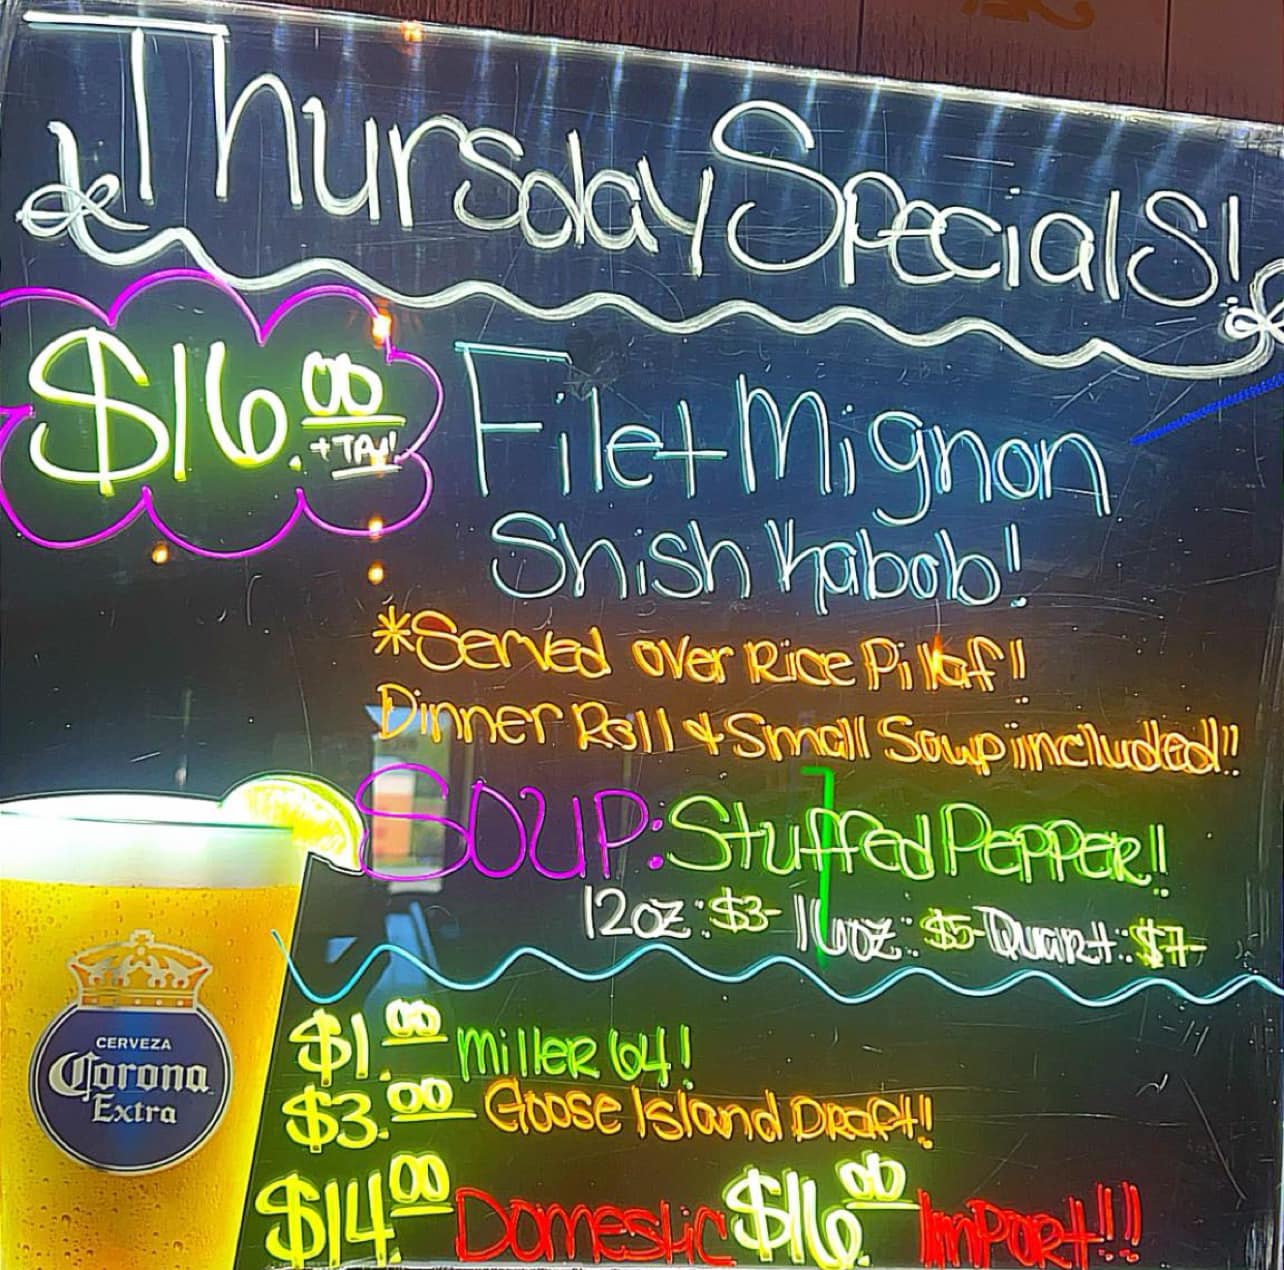 Thursday Specials!
$16.00 + TAX! Filet Mignon
Shish Kabob!
*Served over Rice Pilaf!!
Dinner Roll & Small Soup included!!
Soup: Stuffed Pepper!!
12oz: $3- 16oz: $5- Quart: $7-
$1.00 Miller 64!
$3.00 Goose Island Draft!!
$14.00 Domestic $16.00 Import!!!
CERVEZA
Corona
Extra